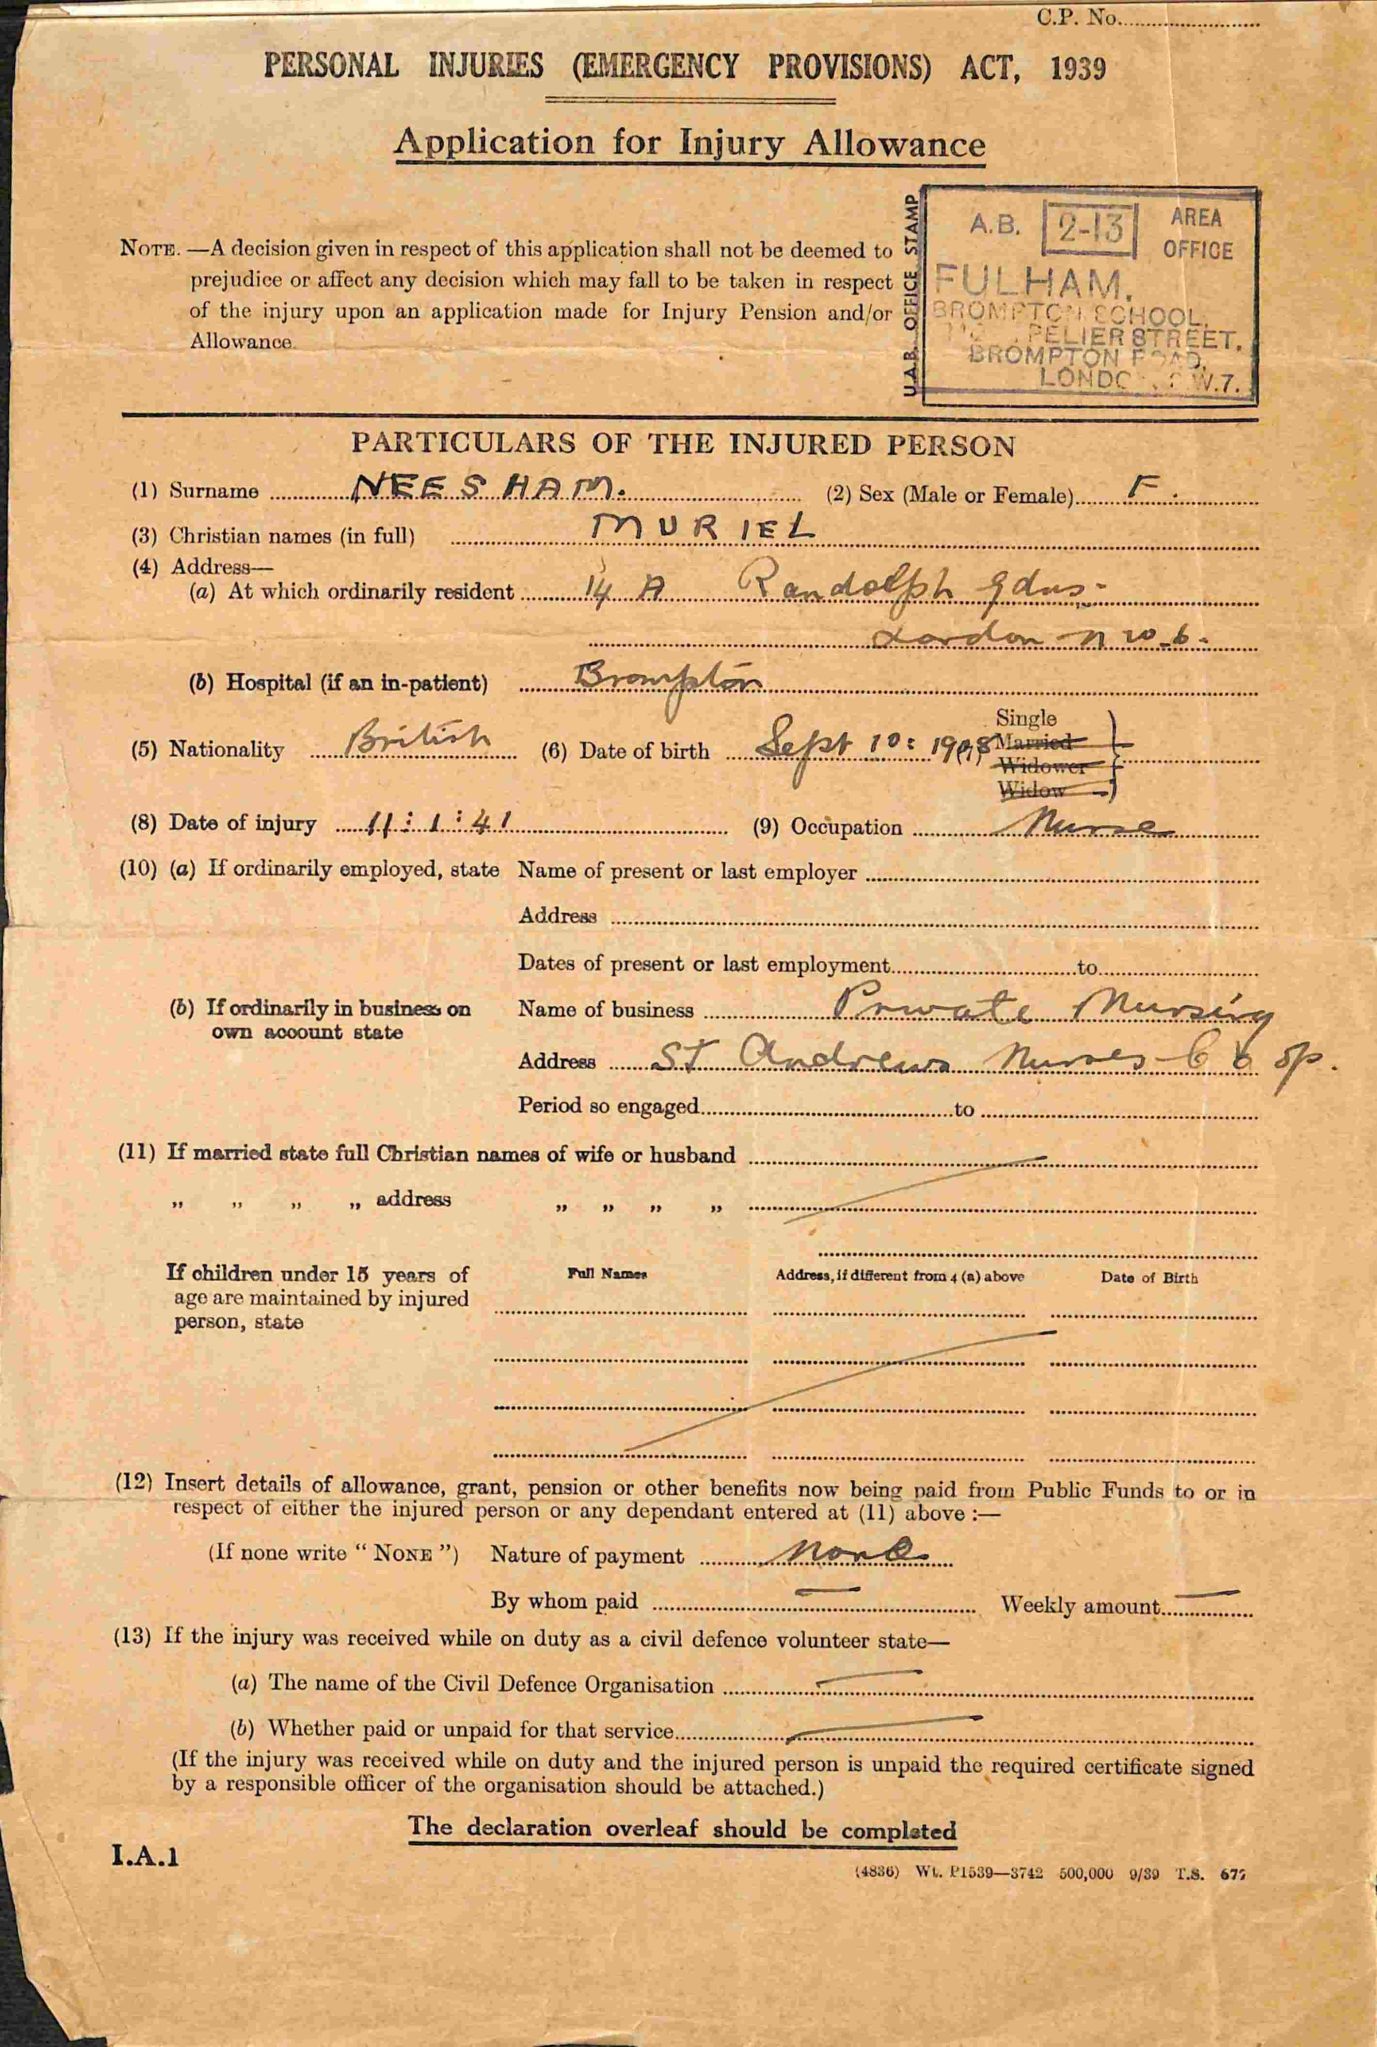 C.P. No.
PERSONAL INJURIES (EMERGENCY PROVISIONS) ACT, 1939
Application for Injury Allowance
NOTE.—A decision given in respect of this application shall not be deemed to
prejudice or affect any decision which may fall to be taken in respect
of the injury upon an application made for Injury Pension and/or
Allowance.
U.A.B. OFFICE STAMP
A.B. 2-13 AREA
OFFICE
FULHAM.
BROMPTON SCHOOL,
PELIER STREET,
BROMPTON ROAD,
LONDON, S.W.7.
PARTICULARS OF THE INJURED PERSON
(1) Surname NEESHAM. (2) Sex (Male or Female) F.
(3) Christian names (in full) MURIEL
(4) Address—
(a) At which ordinarily resident 14 A Randolph Gdns.
London N W. 6.
(b) Hospital (if an in-patient) Brompton
(5) Nationality British (6) Date of birth Sept 10: 1908 Single
Married
Widower
Widow
(8) Date of injury 11:1:41 (9) Occupation Nurse
(10) (a) If ordinarily employed, state Name of present or last employer
Address
Dates of present or last employment to
(b) If ordinarily in business on Name of business Private Nursing
own account state
Address St Andrews Nurses Co op.
Period so engaged to
(11) If married state full Christian names of wife or husband
„ „ „ „ address „ „ „ „
If children under 15 years of Full Names Address, if different from 4 (a) above Date of Birth
age are maintained by injured
person, state
(12) Insert details of allowance, grant, pension or other benefits now being paid from Public Funds to or in
respect of either the injured person or any dependant entered at (11) above :—
(If none write “ NONE ”) Nature of payment None
By whom paid — Weekly amount —
(13) If the injury was received while on duty as a civil defence volunteer state—
(a) The name of the Civil Defence Organisation —
(b) Whether paid or unpaid for that service —
(If the injury was received while on duty and the injured person is unpaid the required certificate signed
by a responsible officer of the organisation should be attached.)
The declaration overleaf should be completed
I.A.1
(4836) Wt. P1539—3742 500,000 9/39 T.S. 677